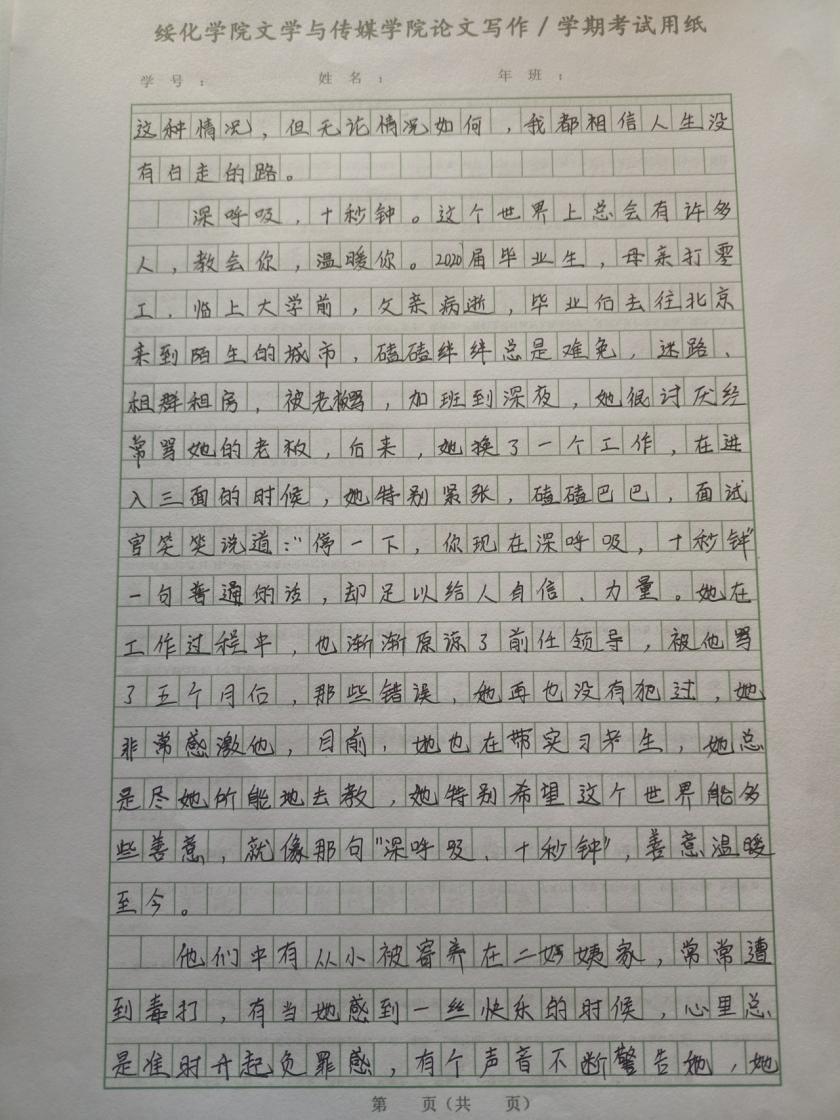 绥化学院文学与传媒学院论文写作/学期考试用纸
学号： 姓名： 年班：
这种情况），但无论情况如何，我都相信人生没
有白走的路。
深呼吸，十秒钟。这个世界上总会有许多
人，教会你，温暖你。2020届毕业生，母亲打零
工，临上大学前，父亲病逝，毕业后去往北京
来到陌生的城市，磕磕绊绊总是难免，迷路、
租群租房，被老板骂，加班到深夜，她很讨厌经
常骂她的老板，后来，她换了一个工作，在进
入三面的时候，她特别紧张，磕磕巴巴，面试
官笑笑说道：“停一下，你现在深呼吸，十秒钟”
一句普通的话，却足以给人自信、力量。她在
工作过程中，也渐渐原谅了前任领导，被他骂
了五个月后，那些错误，她再也没有犯过，她
非常感激他，目前，她也在带实习老生，她总
是尽她所能地去教，她特别希望这个世界能多
些善意，就像那句“深呼吸、十秒钟”，善意温暖
至今。
他们中有从小被寄养在二妈姨家，常常遭
到毒打，有当她感到一丝快乐的时候，心里总
是准时升起负罪感，有个声音不断警告她，她
第 页（共 页）